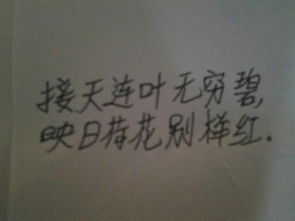 接天连叶无穷碧,
映日荷花别样红.